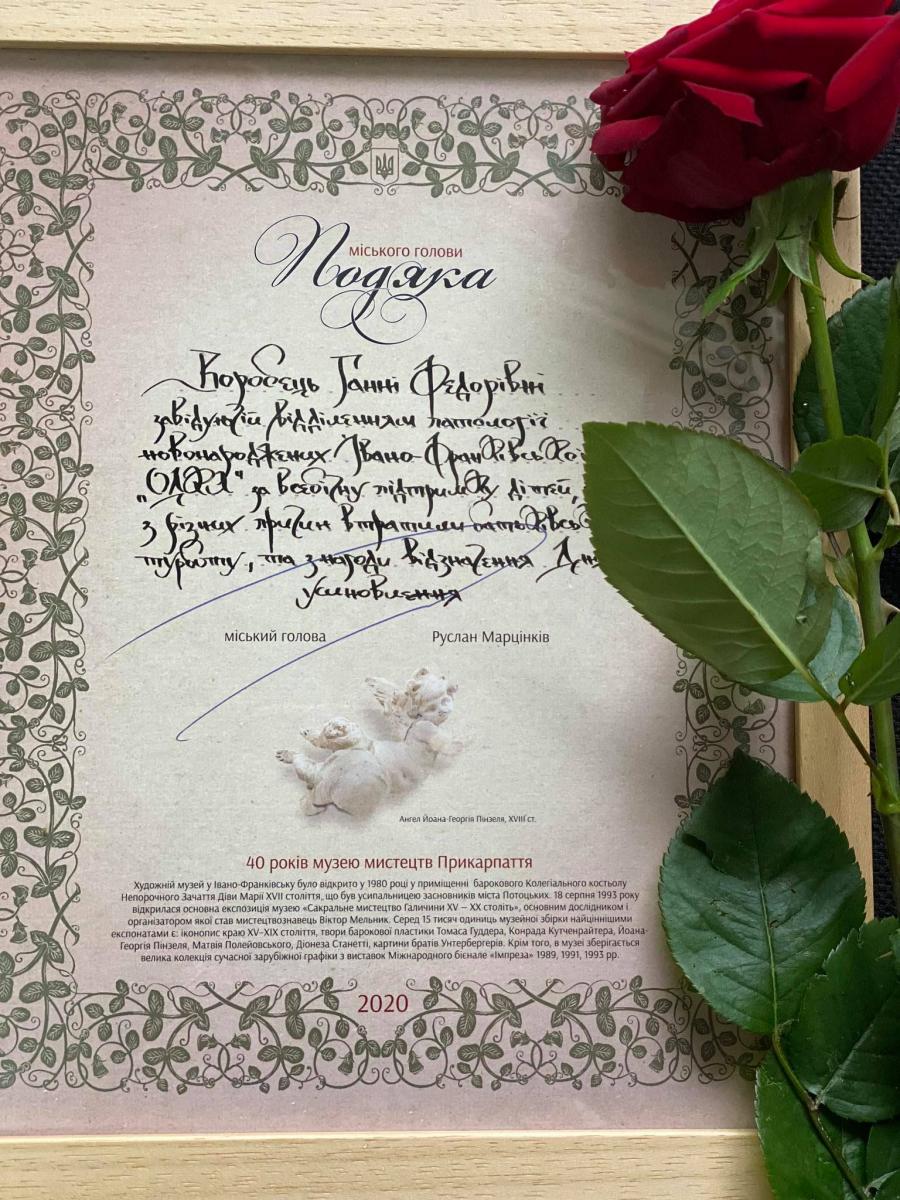 міського голови
Подяка
Коробець Ганні Федорівні
завідуючій відділенням патології
новонароджених Івано-Франківської
"ОДКЛ" за всебічну підтримку дітей,
з різних причин втратили батьківсь
турботу, та з нагоди відзначення Дня
усиновлення
міський голова Руслан Марцінків
Ангел Йоана-Георгія Пінзеля, XVIII ст.
40 років музею мистецтв Прикарпаття
Художній музей у Івано-Франківську було відкрито у 1980 році у приміщенні барокового Колегіального костьолу
Непорочного Зачаття Діви Марії XVII століття, що був усипальницею засновників міста Потоцьких. 18 серпня 1993 року
відкрилася основна експозиція музею «Сакральне мистецтво Галичини XV – XX століть», основним дослідником і
організатором якої став мистецтвознавець Віктор Мельник. Серед 15 тисяч одиниць музейної збірки найціннішими
експонатами є: іконопис краю XV–XIX століття, твори барокової пластики Томаса Гуддера, Конрада Кутченрайтера, Йоана-
Георгія Пінзеля, Матвія Полейовського, Діонеза Станетті, картини братів Унтербергерів. Крім того, в музеї зберігається
велика колекція сучасної зарубіжної графіки з виставок Міжнародного бієнале «Імпреза» 1989, 1991, 1993 рр.
2020